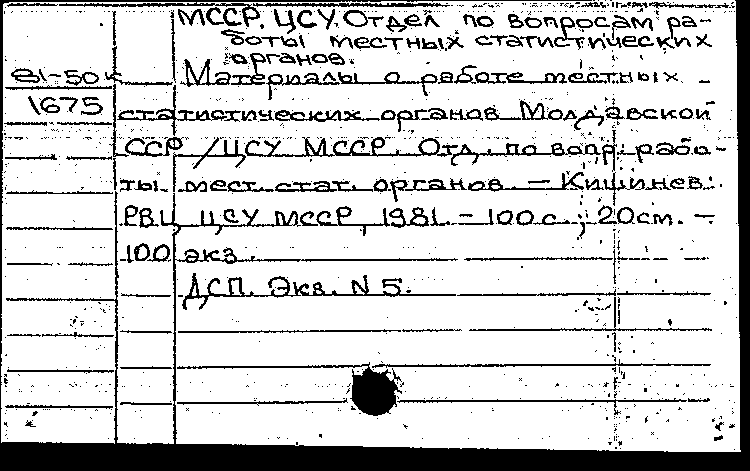 МССР. ЦСУ. Отдел по вопросам ра-
боты местных статистических
органов.
81-50к Материалы о работе местных
1675 статистических органов Молдавской
ССР /ЦСУ МССР. Отд. по вопр. рабо-
ты мест. стат. органов. — Кишинев:
РВЦ ЦСУ МССР, 1981. - 100 с.; 20см. —
100 экз.
ДСП. Экз. N 5.